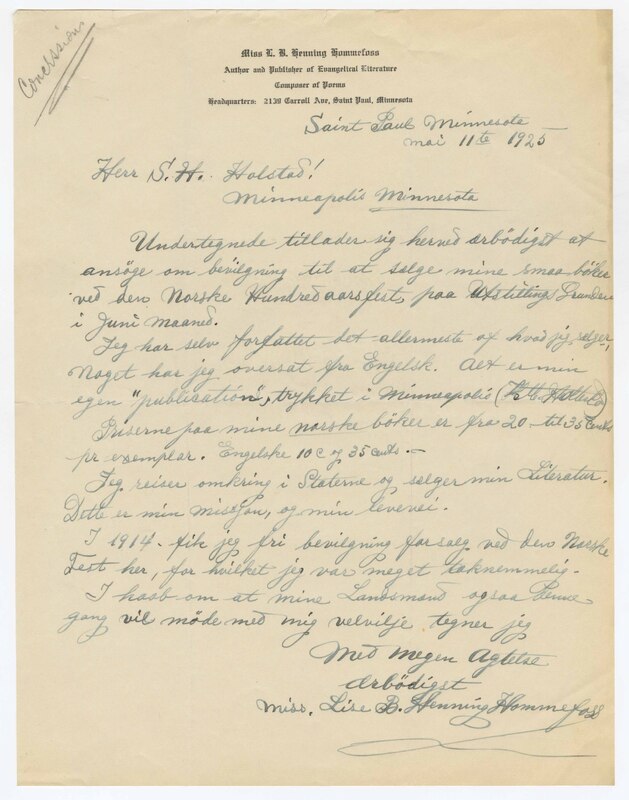 Concession
Miss L. B. Henning Hommefoss
Author and Publisher of Evangelical Literature
Composer of Poems
Headquarters: 2139 Carroll Ave, Saint Paul, Minnesota
Saint Paul Minnesota
mai 11te 1925
Herr S. H. Holstad!
Minneapolis Minnesota
Undertegnede tillader sig herved ærbödigst at
ansöge om bevilgning til at sælge mine smaa böker
ved den Norske Hundredaarsfest, paa Utstillings Grunden
i Juni maaned.
Jeg har selv forfattet det allermeste af hvad jeg sælger,
Noget har jeg oversat fra Engelsk. Alt er min
egen "publication", trykket i Minneapolis (K. C. Holter Co)
Priserne paa mine norske böker er fra 20 til 35 Cents
pr exemplar. Engelske 10 c og 35 cents. —
Jeg reiser omkring i Staterne og sælger min Literatur.
Dette er min missjon, og min levevei.
I 1914 fik jeg fri bevilgning for salg ved den Norske
Fest her, for hvilket jeg var meget taknemmelig.
I haab om at mine Landsmænd ogsaa denne
gang vil möde med mig velvilje tegner jeg
Med megen Agtelse
ærbödigst
Miss. Lise B. Henning Hommefoss